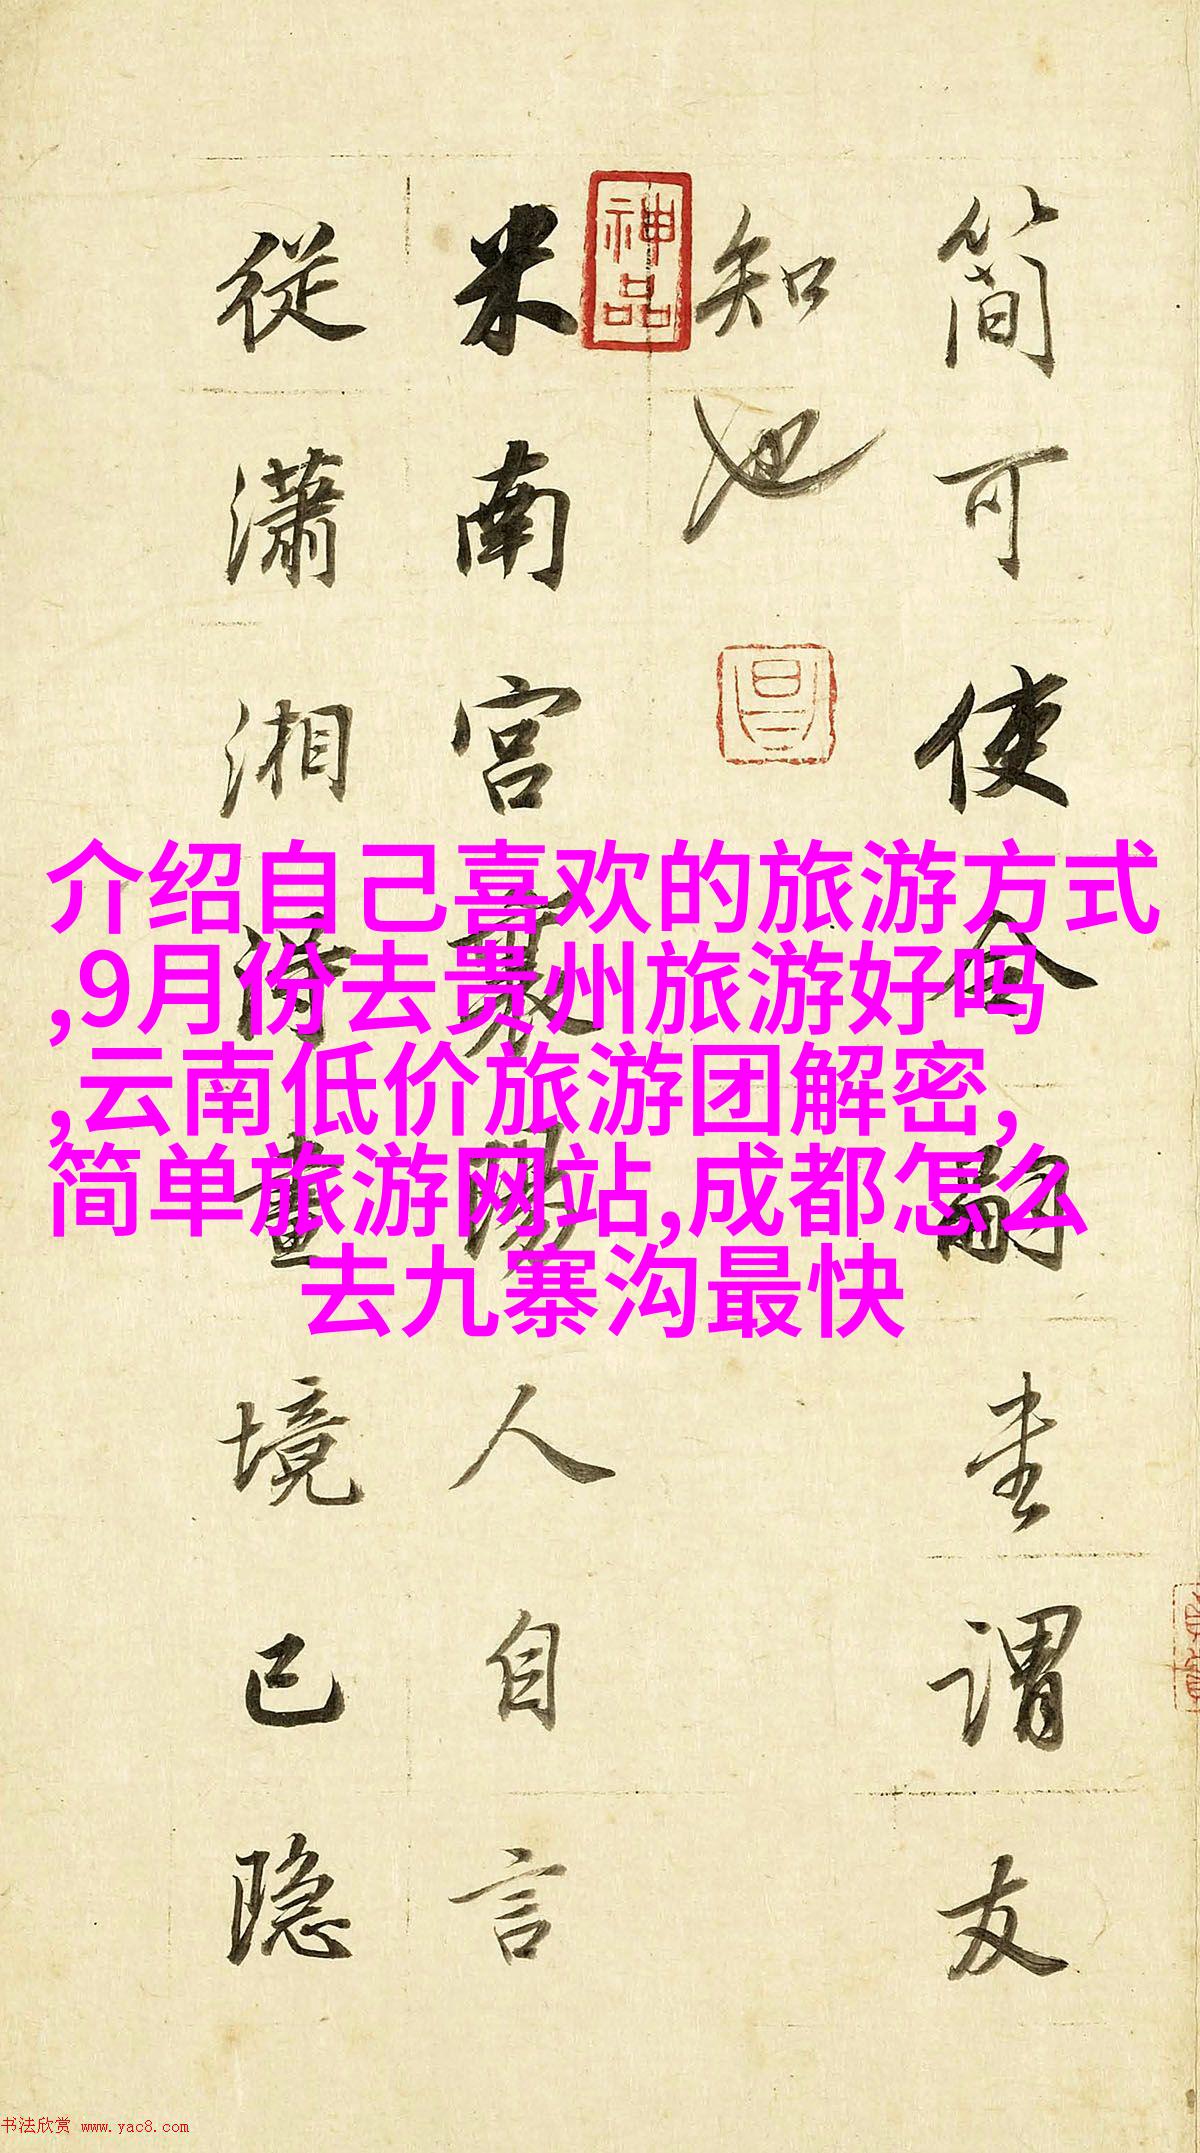 簡可使令嗣圭謂友
知也
神品
昌
米南宫襄陽人自言
從瀟湘得畫境已隐
介绍自己喜欢的旅游方式
,9月份去贵州旅游好吗
,云南低价旅游团解密,
简单旅游网站,成都怎么
去九寨沟最快
书法欣赏 www.yac8.com